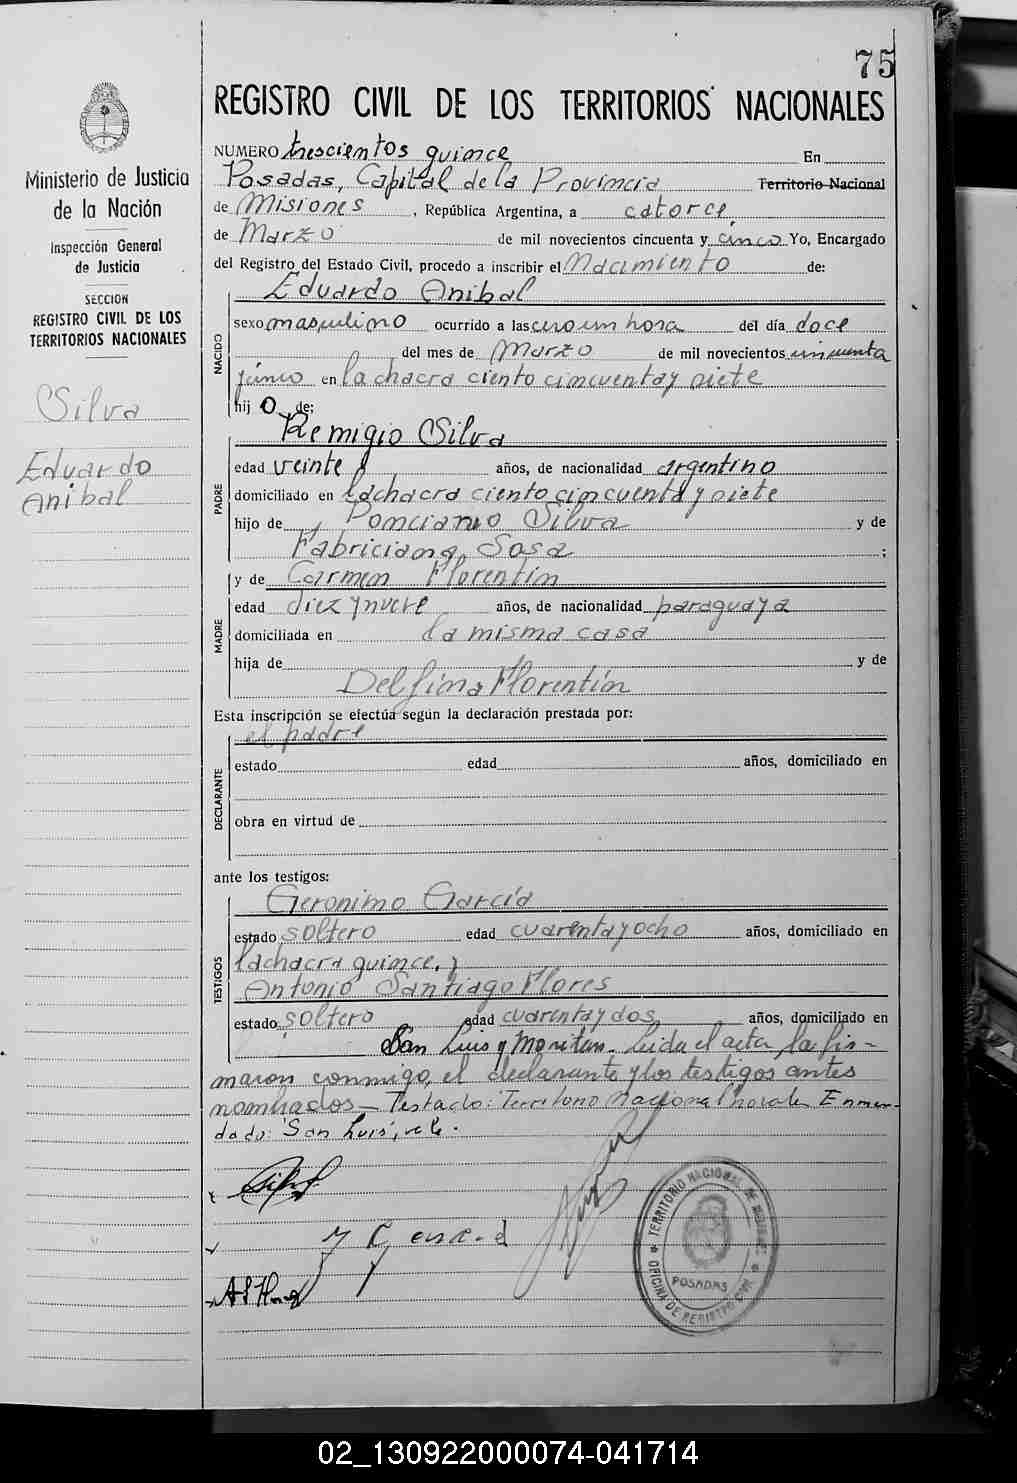 75
Ministerio de Justicia
de la Nación
Inspección General
de Justicia
SECCION
REGISTRO CIVIL DE LOS
TERRITORIOS NACIONALES
Silva
Eduardo
Anibal
REGISTRO CIVIL DE LOS TERRITORIOS NACIONALES
NUMERO trescientos quince En
Posadas, Capital de la Provincia Territorio Nacional
de Misiones, República Argentina, a catorce
de Marzo de mil novecientos cincuenta y cinco Yo, Encargado
del Registro del Estado Civil, procedo a inscribir el Nacimiento de:
NACIDO
Eduardo Anibal
sexo masculino ocurrido a las cero un hora del día doce
del mes de Marzo de mil novecientos cincuenta
y cinco en la chacra ciento cincuenta y siete
hij o de:
PADRE
Remigio Silva
edad veinte y años, de nacionalidad argentino
domiciliado en la chacra ciento cincuenta y siete
hijo de Ponciano Silva y de
Fabriciana Sosa ;
MADRE
y de Carmen Florentín
edad diez y nueve años, de nacionalidad paraguaya
domiciliada en la misma casa
hija de y de
Delfina Florentín
Esta inscripción se efectúa según la declaración prestada por:
DECLARANTE
el padre
estado edad años, domiciliado en
obra en virtud de
ante los testigos:
TESTIGOS
Geronimo García
estado soltero edad cuarenta y ocho años, domiciliado en
la chacra quince, y
Antonio Santiago Flores
estado soltero edad cuarenta y dos años, domiciliado en
San Luis y Moritan. Leida el acta la fir-
maron conmigo, el declarante y los testigos antes
nombrados - Testado: Territorio Nacional no vale Enmen-
dado: San Luis, vale.
TERRITORIO NACIONAL DE MISIONES
POSADAS
OFICINA DE REGISTRO CIVIL
02_130922000074-041714